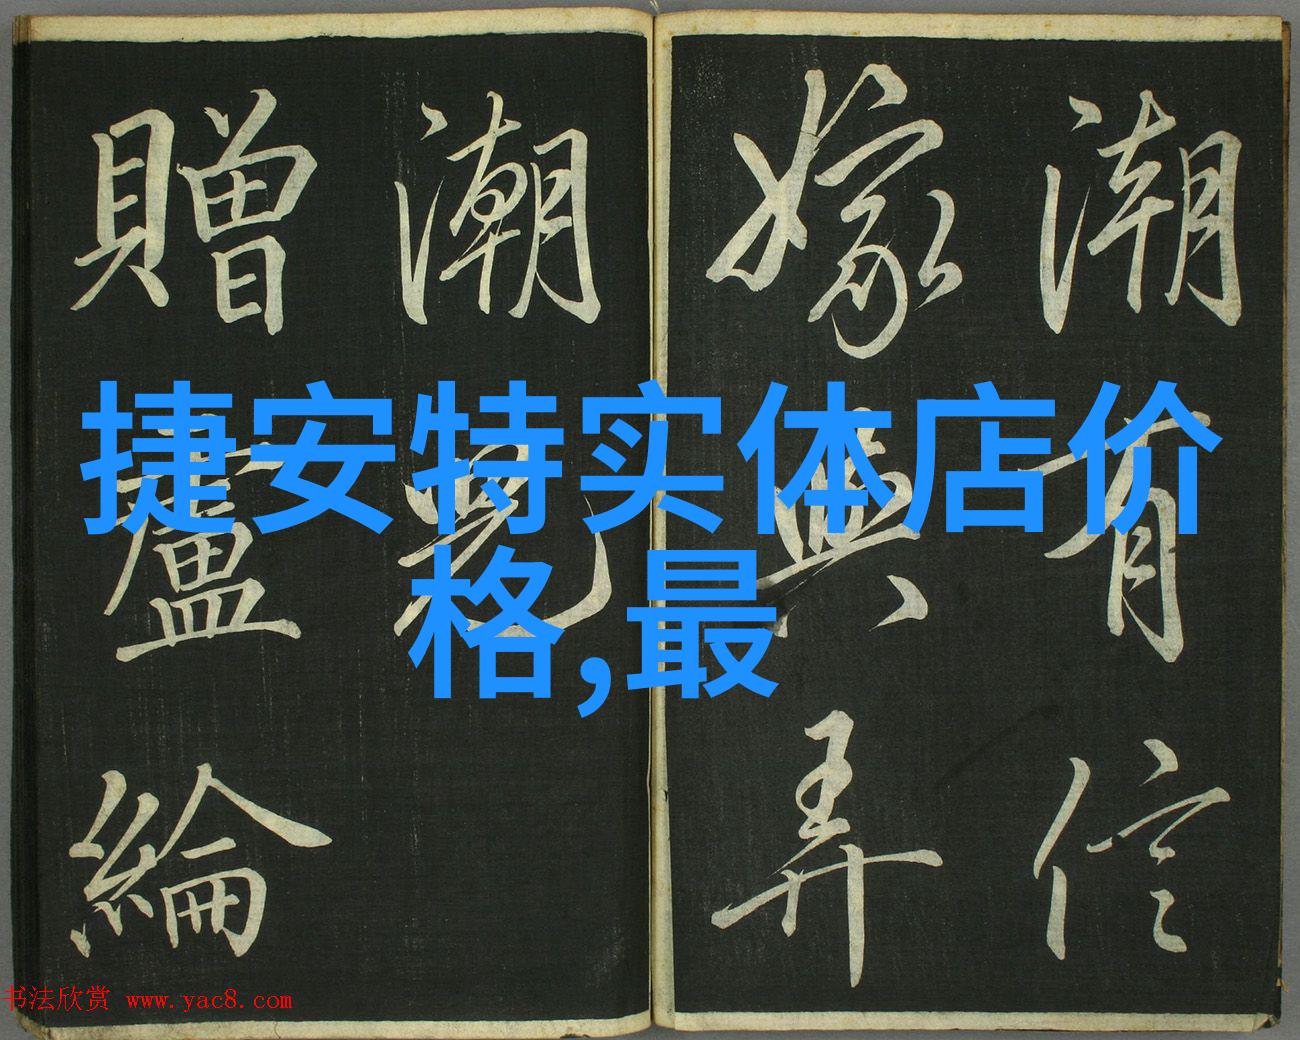 潮有信
嫁與弄
潮兒
贈盧綸
捷安特实体店价
格,最
书法欣赏 www.yac8.com